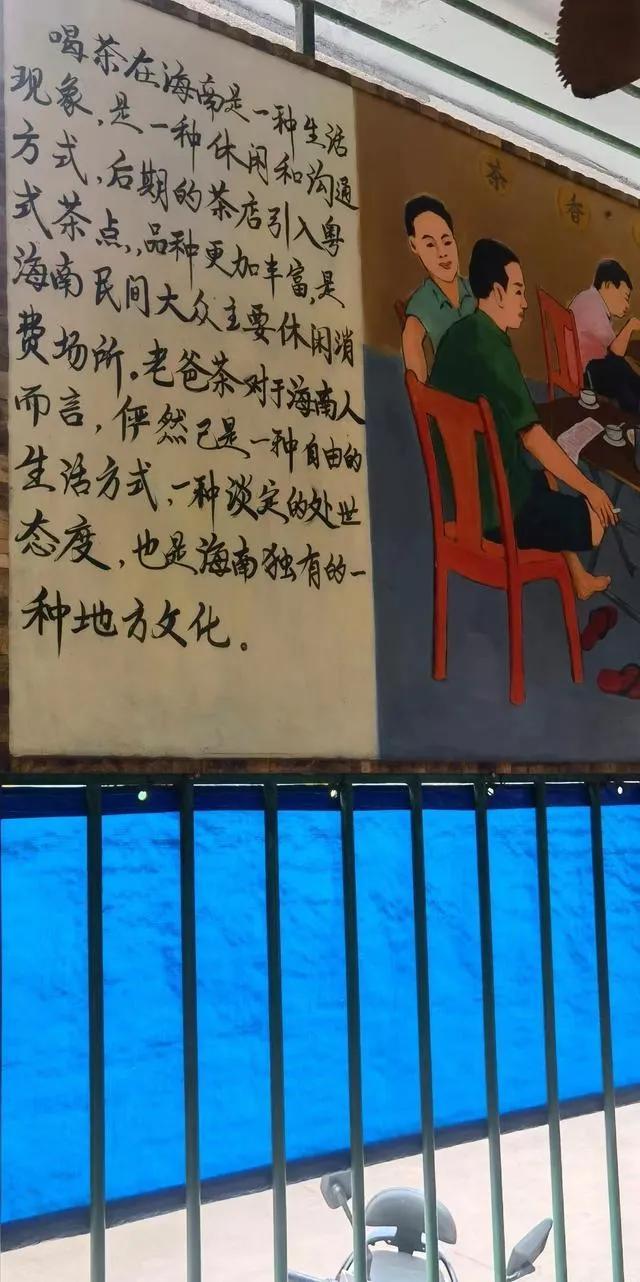 喝茶在海南是一种生活
现象,是一种休闲和沟通
方式,后期的茶店引入粤
式茶点,品种更加丰富,是
海南民间大众主要休闲消
费场所。老爸茶对于海南人
而言,俨然已是一种自由的
生活方式,一种淡定的处世
态度,也是海南独有的一
种地方文化。
茶香